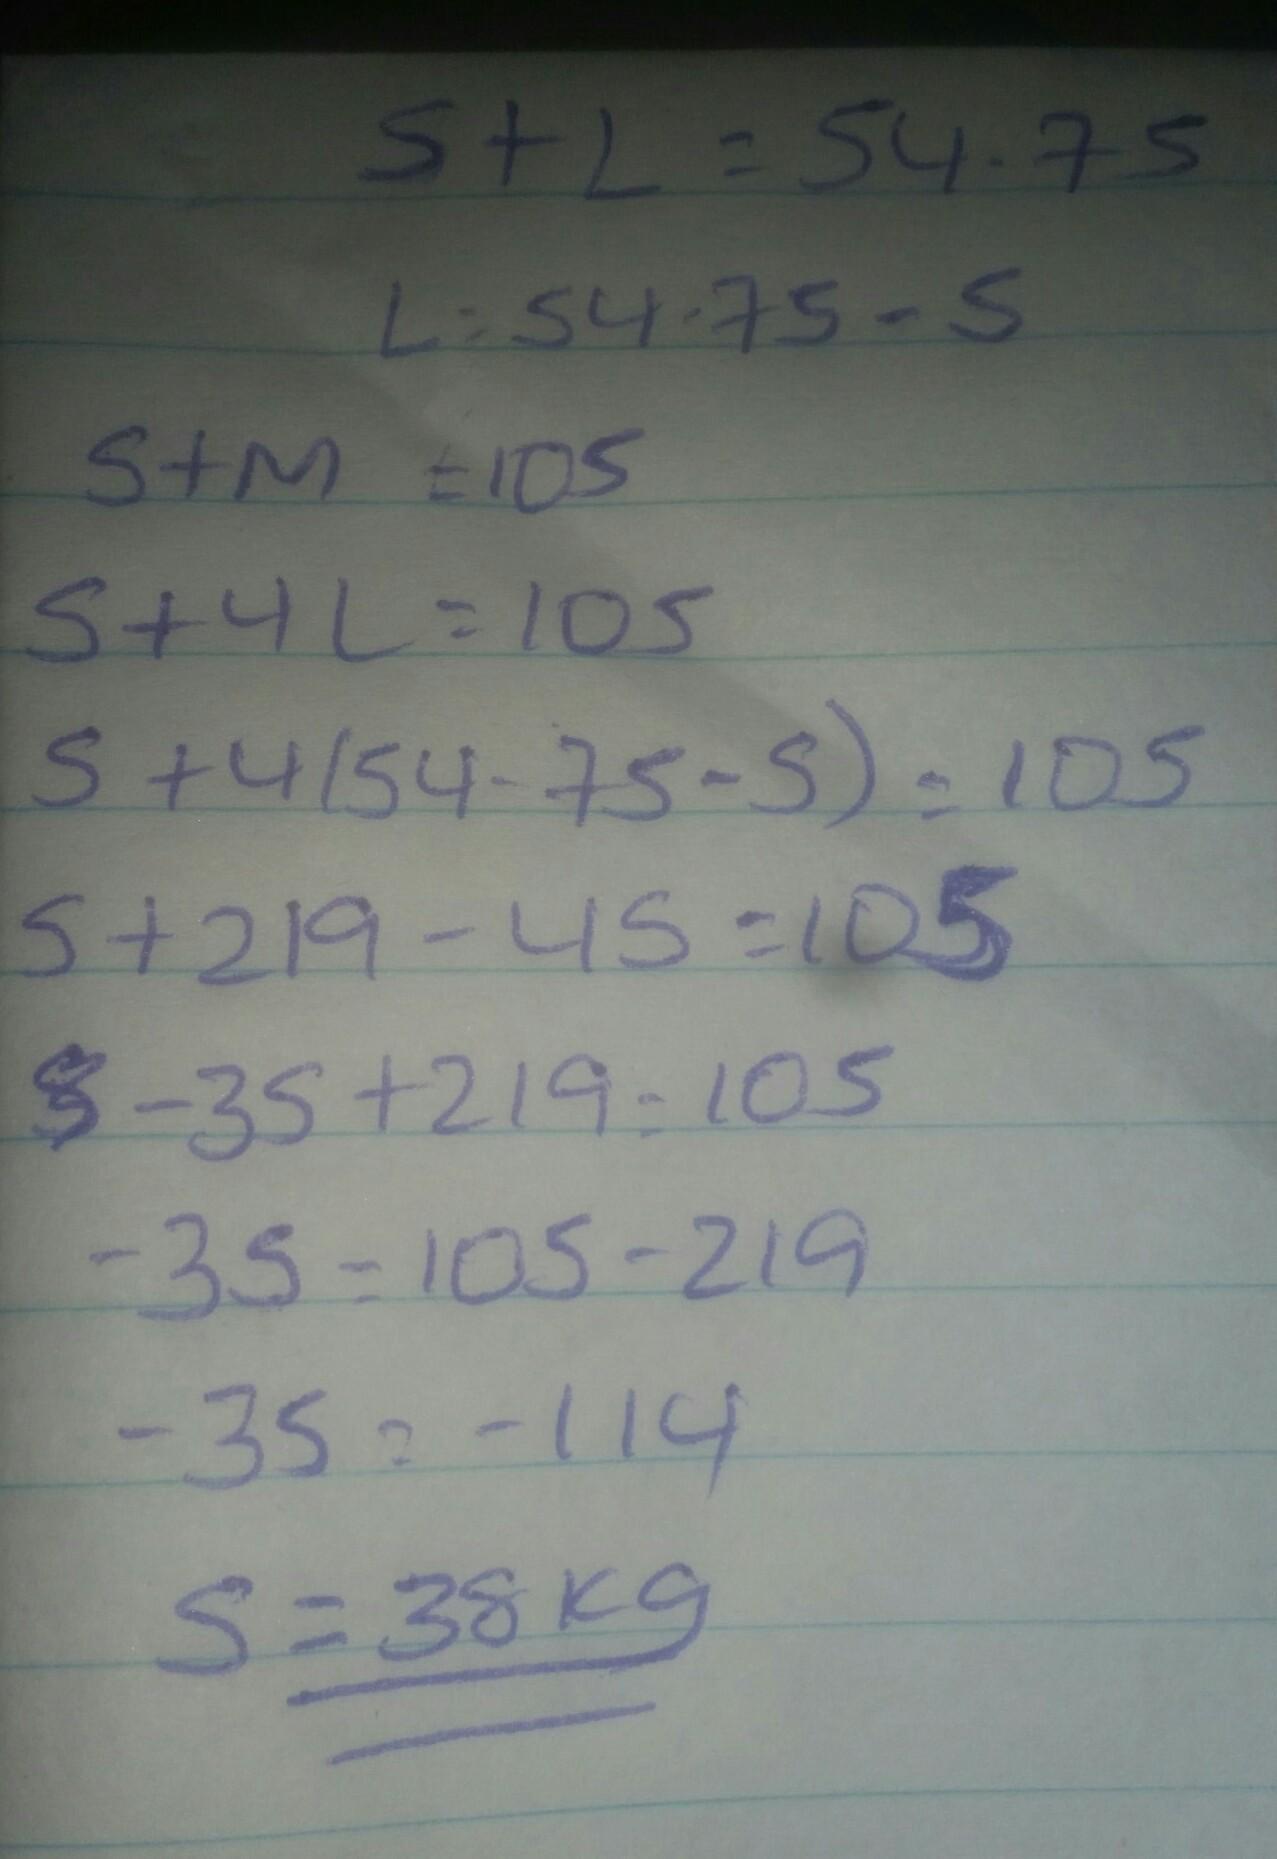 S+L = 54.75
L = 54.75 - S
S+M = 105
S+4L = 105
S+4(54.75-S) = 105
S+219 - 4S = 105
-3S+219 = 105
-3S = 105-219
-3S = -114
S = 38kg